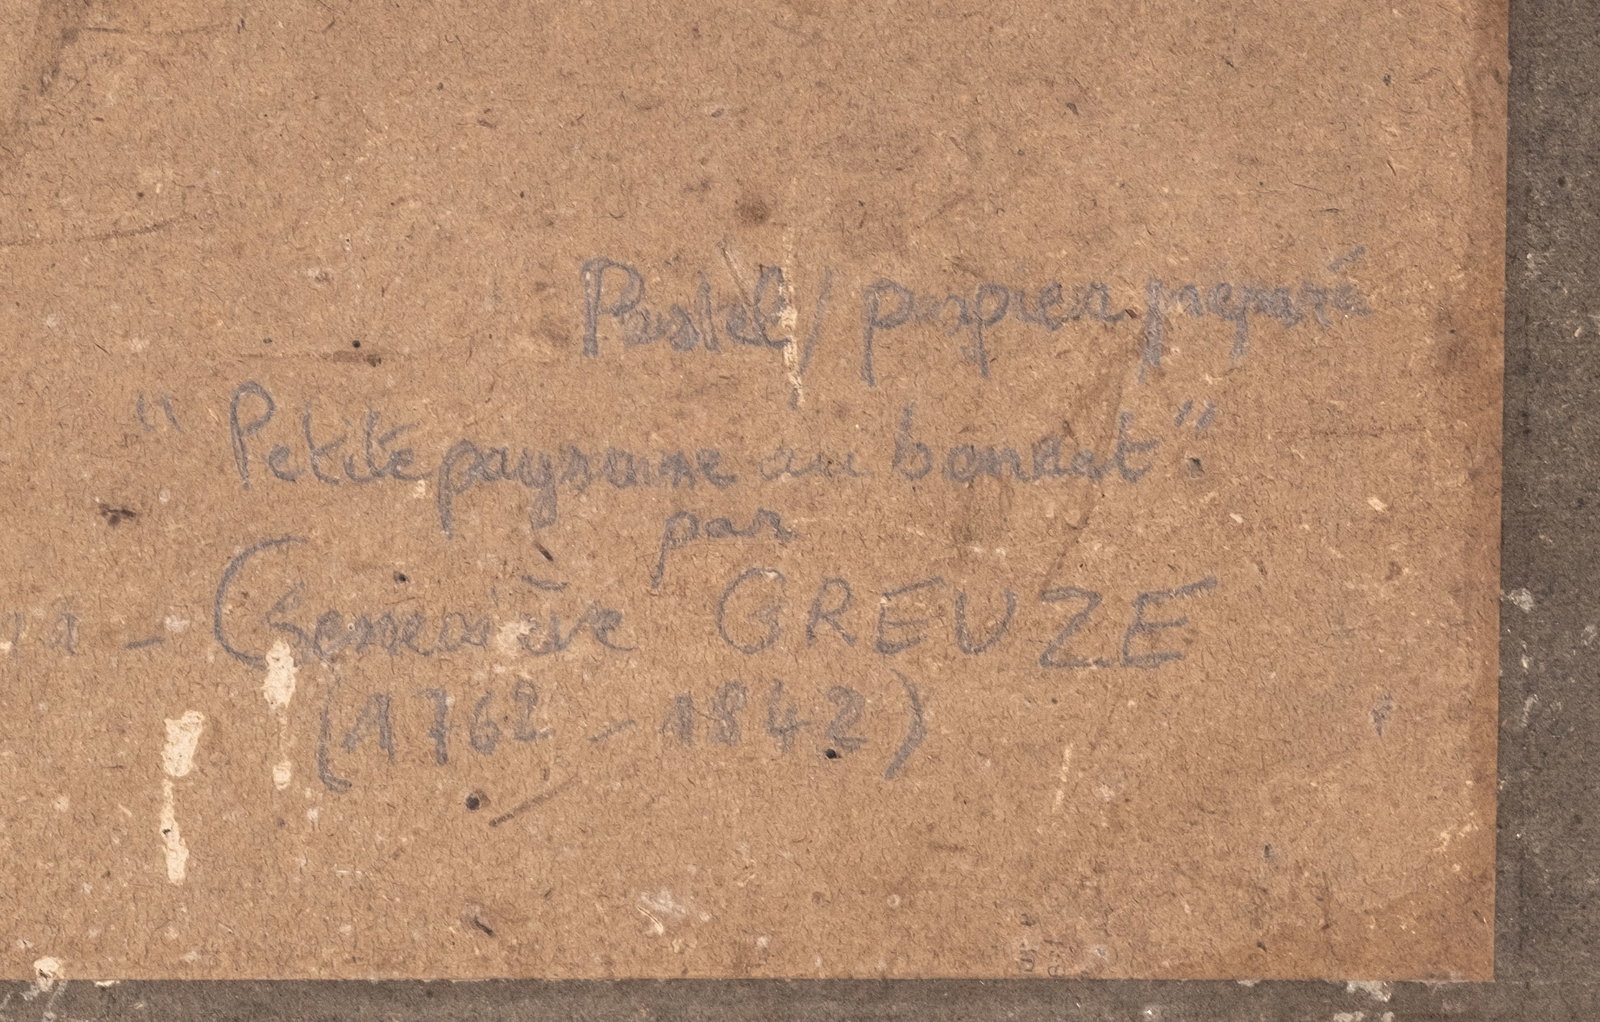 Pastel / papier préparé
"Petite paysanne au bonnet"
par
- Geneviève GREUZE
(1762 - 1842)